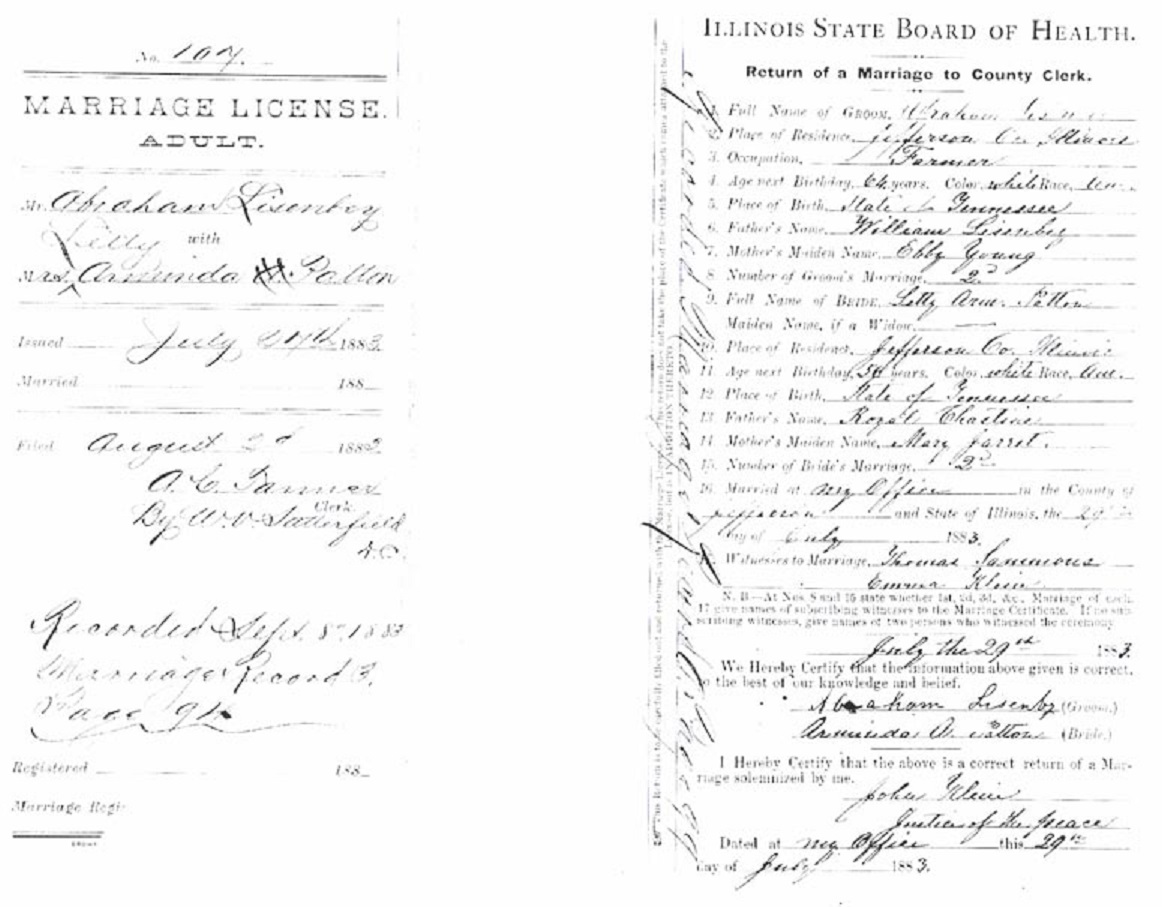 No. 107.
MARRIAGE LICENSE.
ADULT.
Mr. Abraham Lisenbey
Letty with
Mrs. Arminda Patton
Issued July 27th 1883
Married 188
Filed August 2d 1883
A. C. Tanner
Clerk
By W V Satterfield
D.C.
Recorded Sept. 8th 1883
Marriage Record 3.
Page 94
Registered 188
Marriage Regi
ILLINOIS STATE BOARD OF HEALTH.
Return of a Marriage to County Clerk.
1. Full Name of GROOM, Abraham
2. Place of Residence, Jefferson Co. Illinois
3. Occupation, Farmer
4. Age next Birthday, 64 years. Color, white Race, Am.
5. Place of Birth, State of Tennessee
6. Father's Name, William Lisenbey
7. Mother's Maiden Name, Ebby Young
8. Number of Groom's Marriage, 2d
9. Full Name of BRIDE, Letty Arm. Patton
Maiden Name, if a Widow,
10. Place of Residence, Jefferson Co.
11. Age next Birthday, years. Color, white Race, Am.
12. Place of Birth, State of Tennessee
13. Father's Name, Royal
14. Mother's Maiden Name, Mary Jarret.
15. Number of Bride's Marriage, 2d
16. Married at my Office in the County of
Jefferson and State of Illinois, the 29th
day of July 1883.
17. Witnesses to Marriage, Thomas Sammons
Emma Klein
N. B.—At Nos. 8 and 15 state whether 1st, 2d, 3d, &c., Marriage of each.
17 give names of subscribing witnesses to the Marriage Certificate. If no sub-
scribing witnesses, give names of two persons who witnessed the ceremony
July the 29th 1883.
We Hereby Certify that the information above given is correct,
to the best of our knowledge and belief.
Abraham Lisenby (Groom.)
Arminda A. Patton (Bride.)
I Hereby Certify that the above is a correct return of a Mar-
riage solemnized by me.
John Klein
Justice of the peace
Dated at my Office this 29th
day of July 1883.